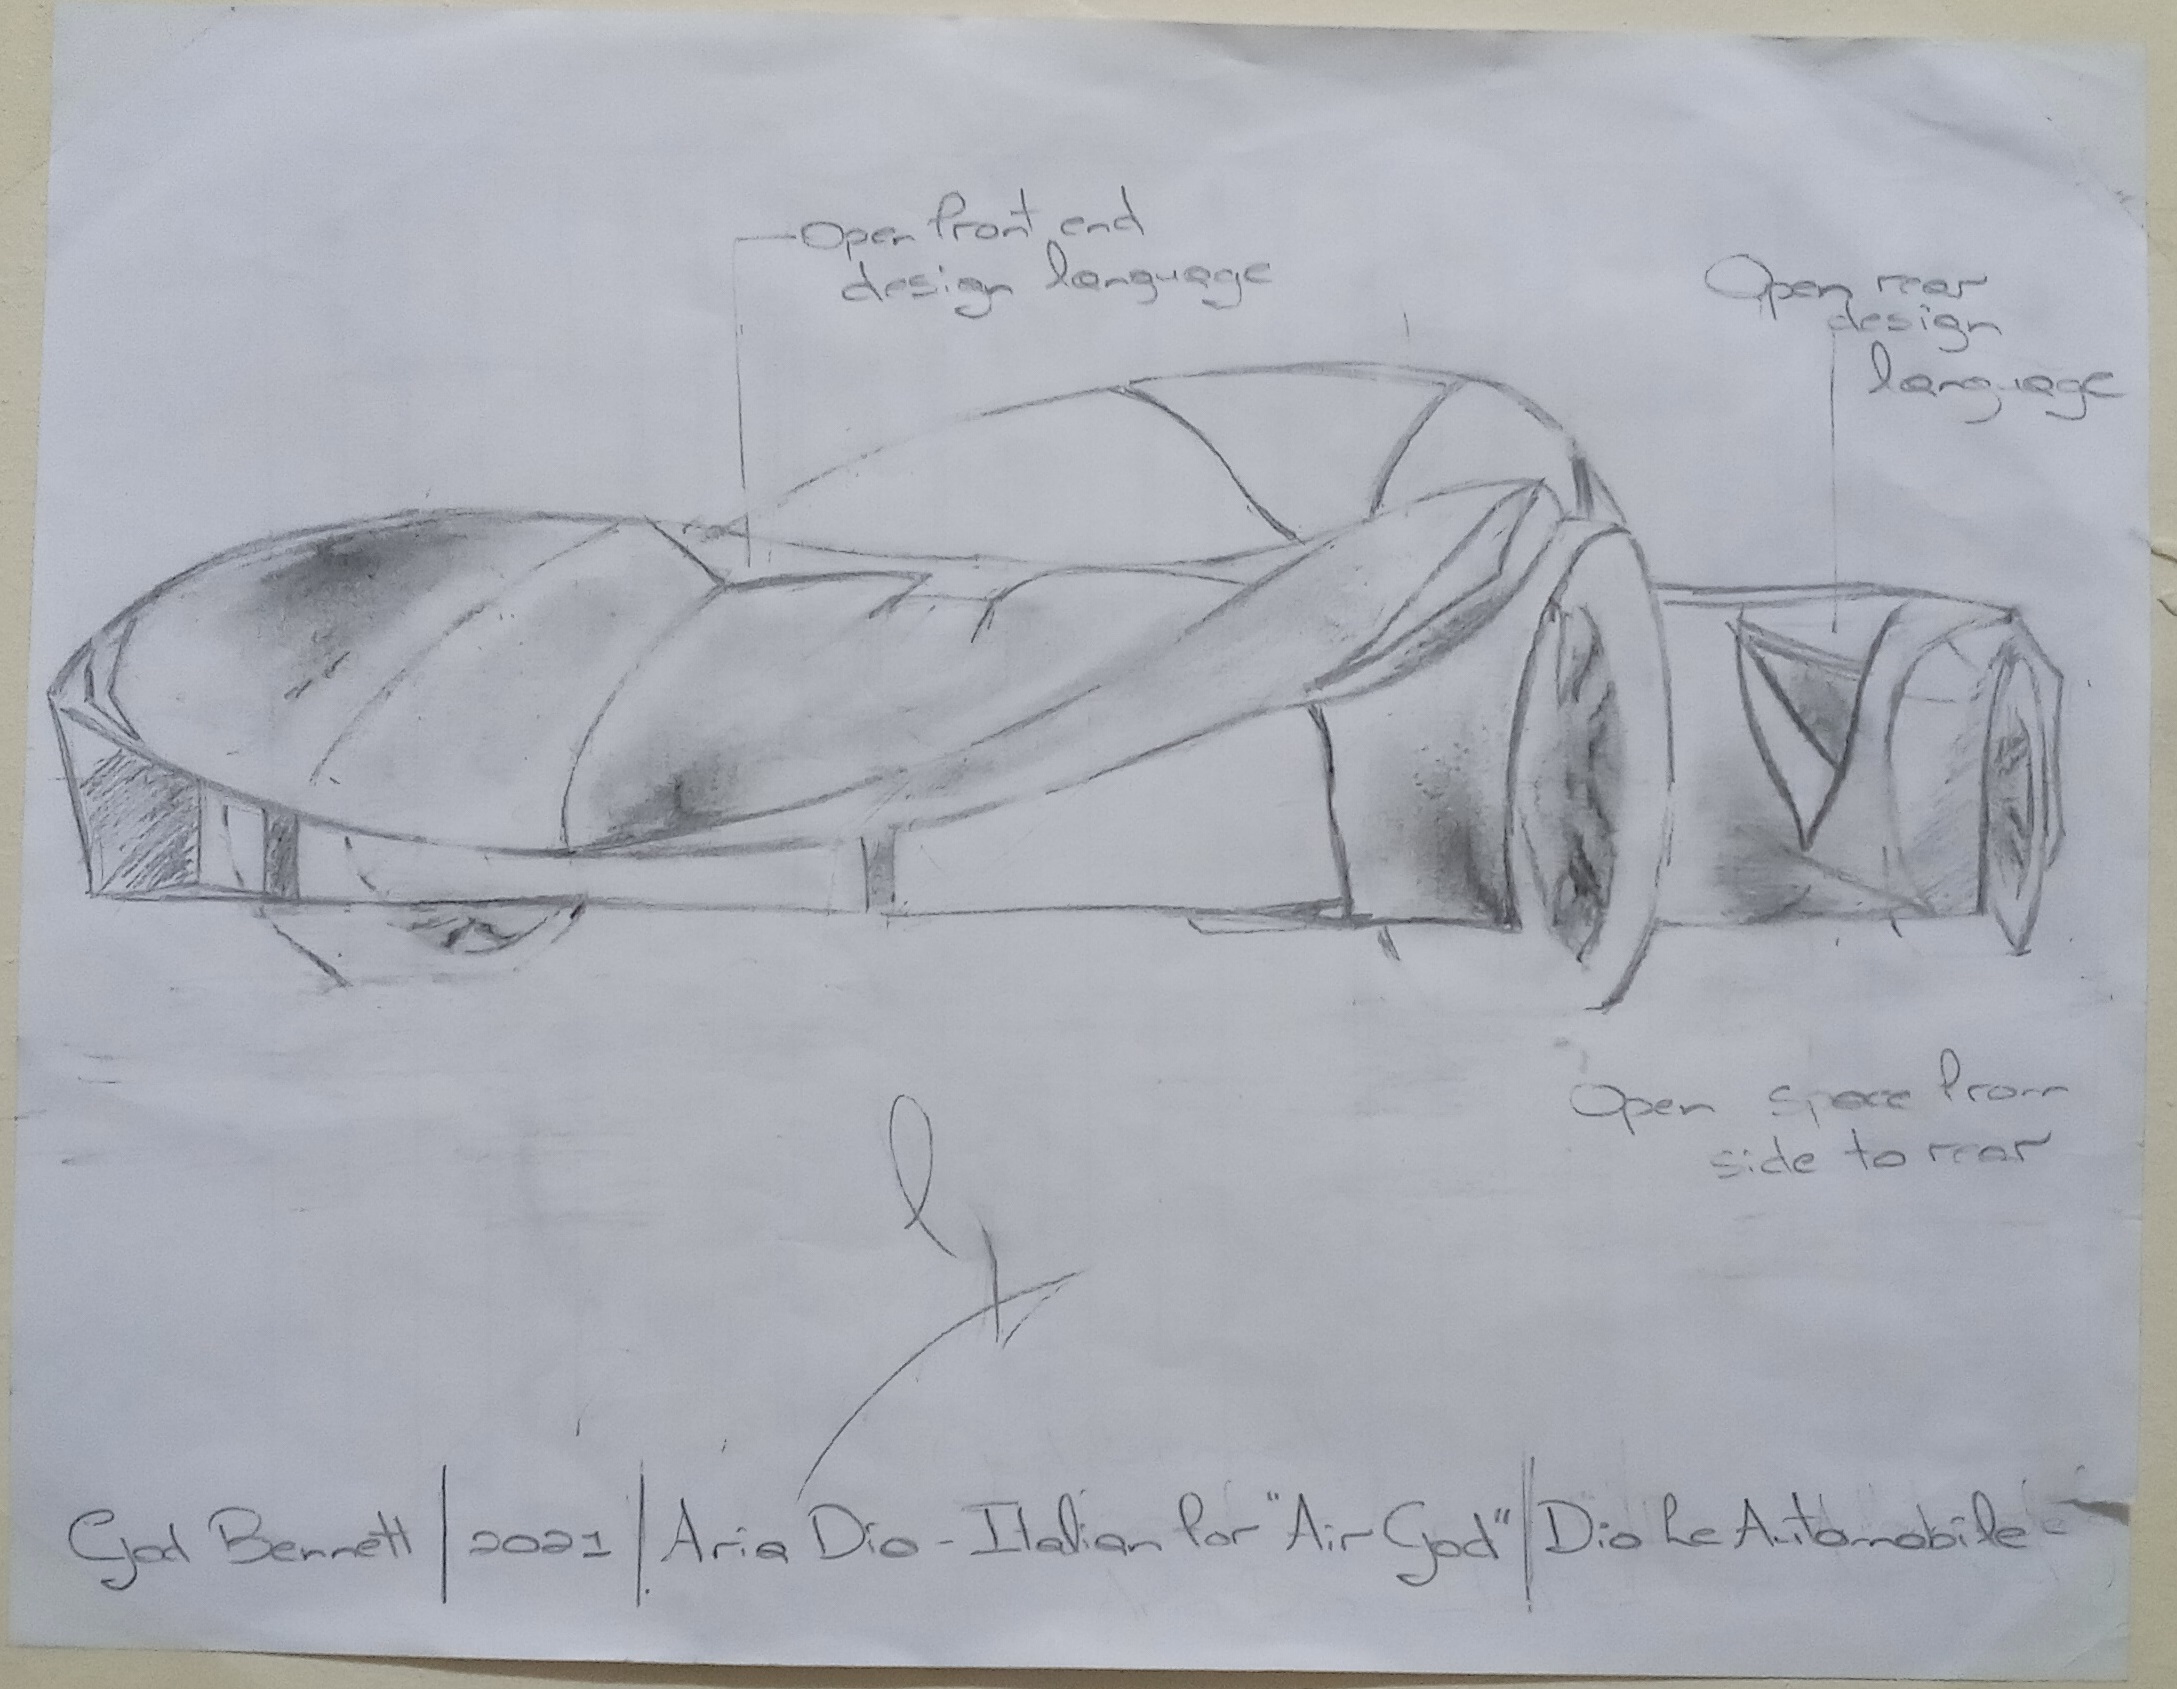 Open front end
design language
Open rear
design
language
Open space from
side to rear
God Bennett | 2021 | Aria Dio - Italian for "Air God" | Dio Le Automobile